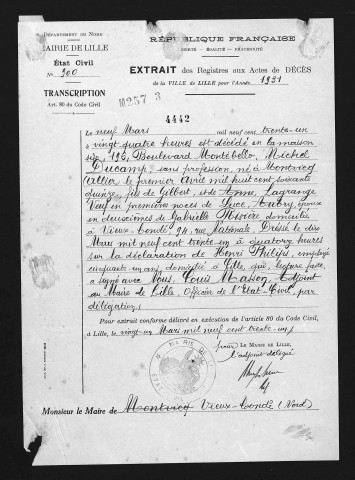 DÉPARTEMENT DU NORD
MAIRIE DE LILLE
État Civil
No 900
TRANSCRIPTION
Art. 80 du Code Civil
RÉPUBLIQUE FRANÇAISE
LIBERTÉ — ÉGALITÉ — FRATERNITÉ
EXTRAIT des Registres aux Actes de DÉCÈS
de la VILLE DE LILLE pour l'Année 1931
M257 3
4442
Le neuf Mars mil neuf cent trente-un
à vingt quatre heures est décédé en la maison
sise 196, Boulevard Montebello, Michel
Ducamp, sans profession, né à Montvicq
(Allier, le premier Avril mil huit cent soixante
quinze, fils de Gilbert, et de Anne Lagrange
Veuf en premières noces de Luce Aubry époux
en deuxièmes de Gabrielle domiciliée
à Vieux-Condé 94, rue Nationale. Dressé le dix
Mars mil neuf cent trente un à quatorze heures
sur la déclaration de Henri Philips, employé
cinquante un ans, domicilié à Lille, qui, lecture faite,
a signé avec Nous, Louis Masson, Adjoint
au Maire de Lille, Officier de l'Etat-Civil, par
délégation,
Pour extrait conforme délivré en exécution de l'article 80 du Code Civil,
à Lille, le vingt-un Mars mil neuf cent trente-un
pour LE MAIRE DE LILLE,
l'adjoint délégué
MAIRIE DE
Monsieur le Maire de Montvicq Vieux-Condé (Nord)